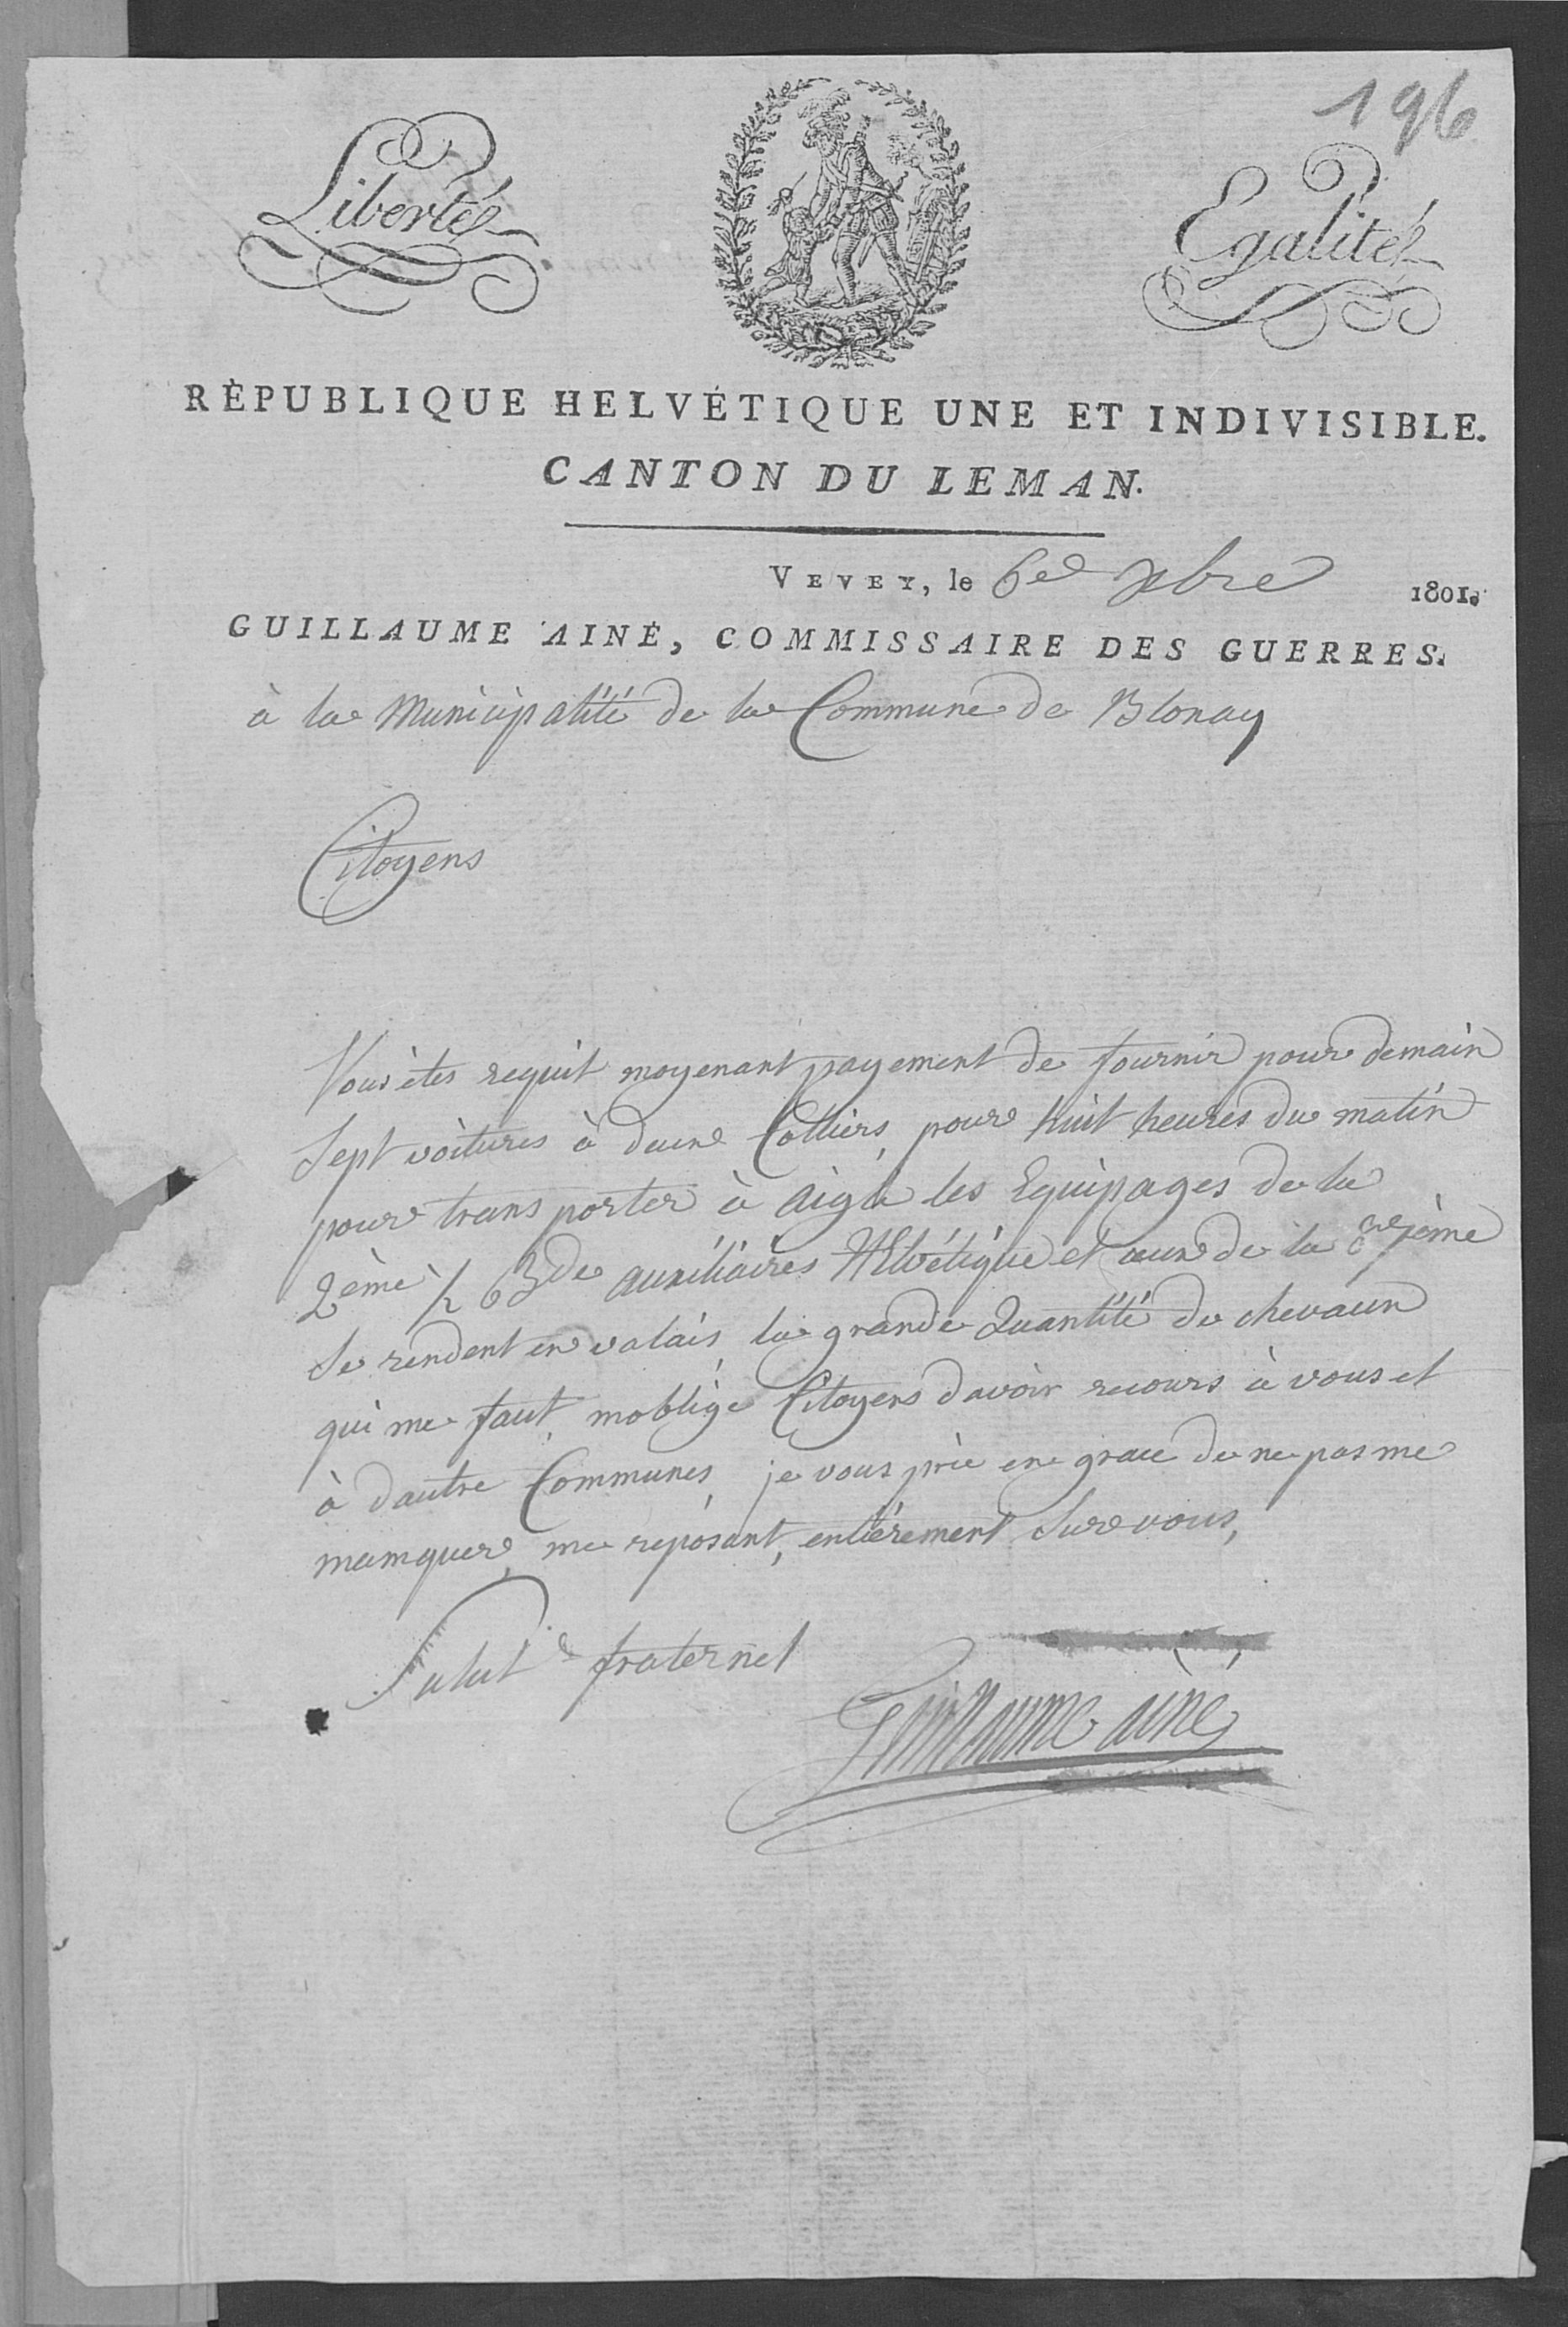 196
Liberté
Egalité
RÉPUBLIQUE HELVÉTIQUE UNE ET INDIVISIBLE.
CANTON DU LEMAN.
VEVEY, le 6e xbre 1801.
GUILLAUME AINÉ, COMMISSAIRE DES GUERRES.
à la Municipalité de la Commune de Blonay
Citoyens
Vous ètes requit moyenant payement de fournir pour demain
Sept voitures à deux Colliers, pour huit heures du matin
pour transporter à Aigle les Equipages de la
2ème ½ Bde auxiliaires Helvétique et ceux de la
Se rendent en valais, la grande Quantité de chevaux
qui me faut, moblige Citoyens davoir recours à vous et
à dautre Communes, je vous prie en grace de ne pas me
mamquer, me reposant, entiérement Sur vous,
Salut & fraternel
Guillaume ainé